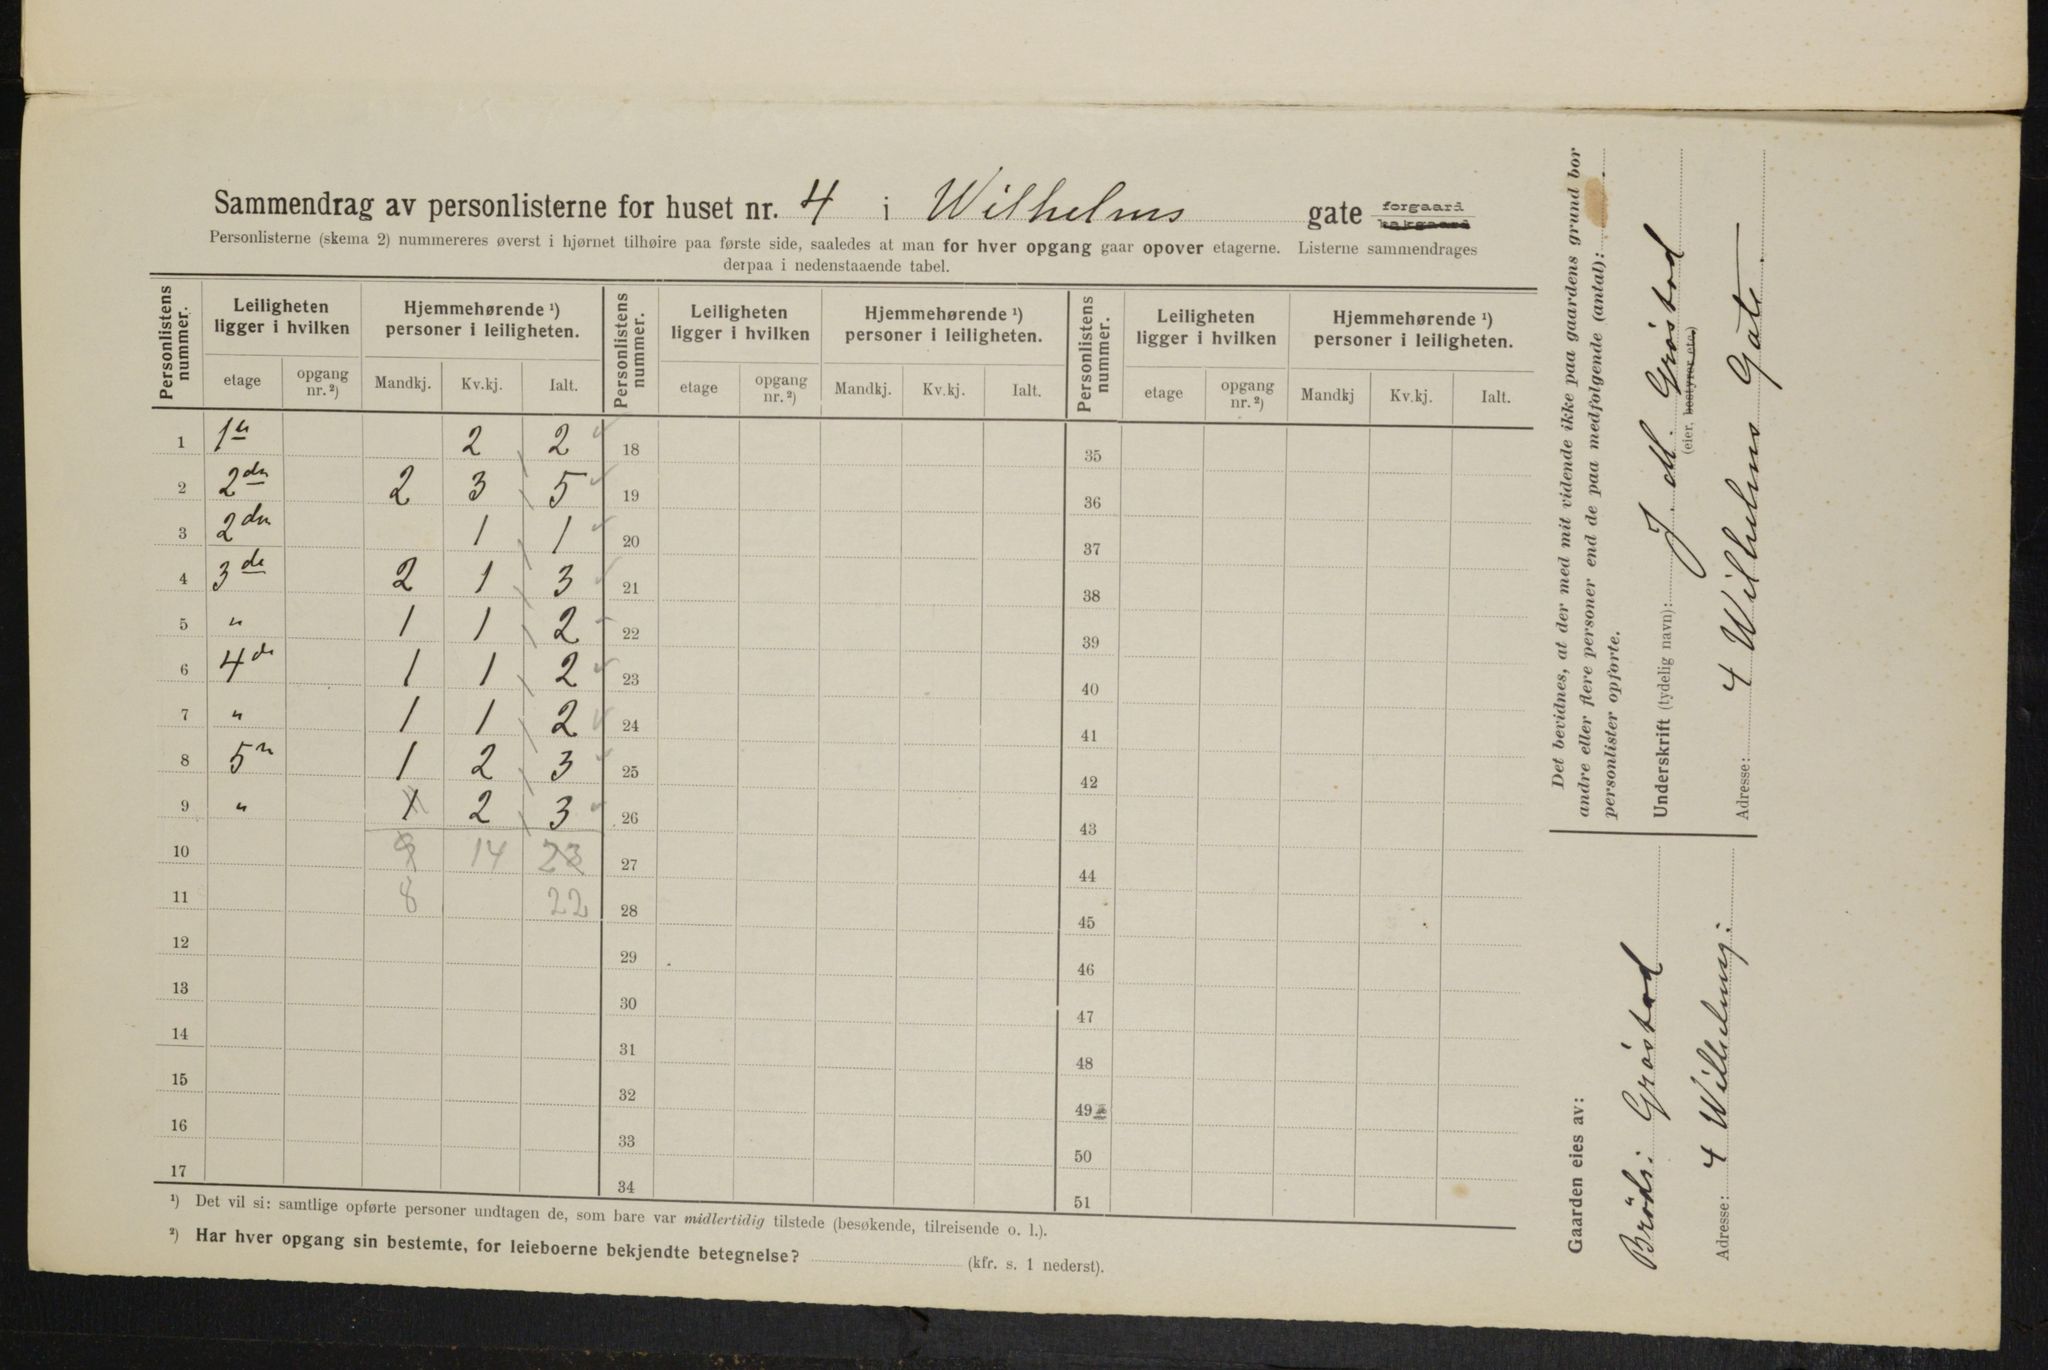 Sammendrag av personlisterne for huset nr. 4 i Wilhelms gate forgaard bakgaard
Personlisterne (skema 2) nummereres øverst i hjørnet tilhøire paa første side, saaledes at man for hver opgang gaar opover etagerne. Listerne sammendrages
derpaa i nedenstaaende tabel.
Personlistens nummer. Leiligheten ligger i hvilken Hjemmehørende ¹) personer i leiligheten. Personlistens nummer. Leiligheten ligger i hvilken Hjemmehørende ¹) personer i leiligheten. Personlistens nummer. Leiligheten ligger i hvilken Hjemmehørende ¹) personer i leiligheten.
etage opgang nr. ²) Mandkj. Kv.kj. Ialt. etage opgang nr. ²) Mandkj. Kv.kj. Ialt. etage opgang nr. ²) Mandkj Kv.kj. Ialt.
1 1ste 2 2 18 35
2 2den 2 3 5 19 36
3 2den 1 1 20 37
4 3de 2 1 3 21 38
5 " 1 1 2 22 39
6 4de 1 1 2 23 40
7 " 1 1 2 24 41
8 5te 1 2 3 25 42
9 " 1 2 3 26 43
10 9 14 23 27 44
11 8 22 28 45
12 29 46
13 30 47
14 31 48
15 32 49
16 33 50
17 34 51
¹) Det vil si: samtlige opførte personer undtagen de, som bare var midlertidig tilstede (besøkende, tilreisende o. l.).
²) Har hver opgang sin bestemte, for leieboerne bekjendte betegnelse? (kfr. s. 1 nederst).
Det bevidnes, at der med mit vidende ikke paa gaardens grund bor
andre eller flere personer end de paa medfolgende (antal):
personlister opforte.
Underskrift (tydelig navn): J. M. Gröstad
(eier, bestyrer etc.)
Adresse: 4 Wilhelms Gate
Gaarden eies av:
Brödr. Gröstad
Adresse: 4 Wilhelmsg.